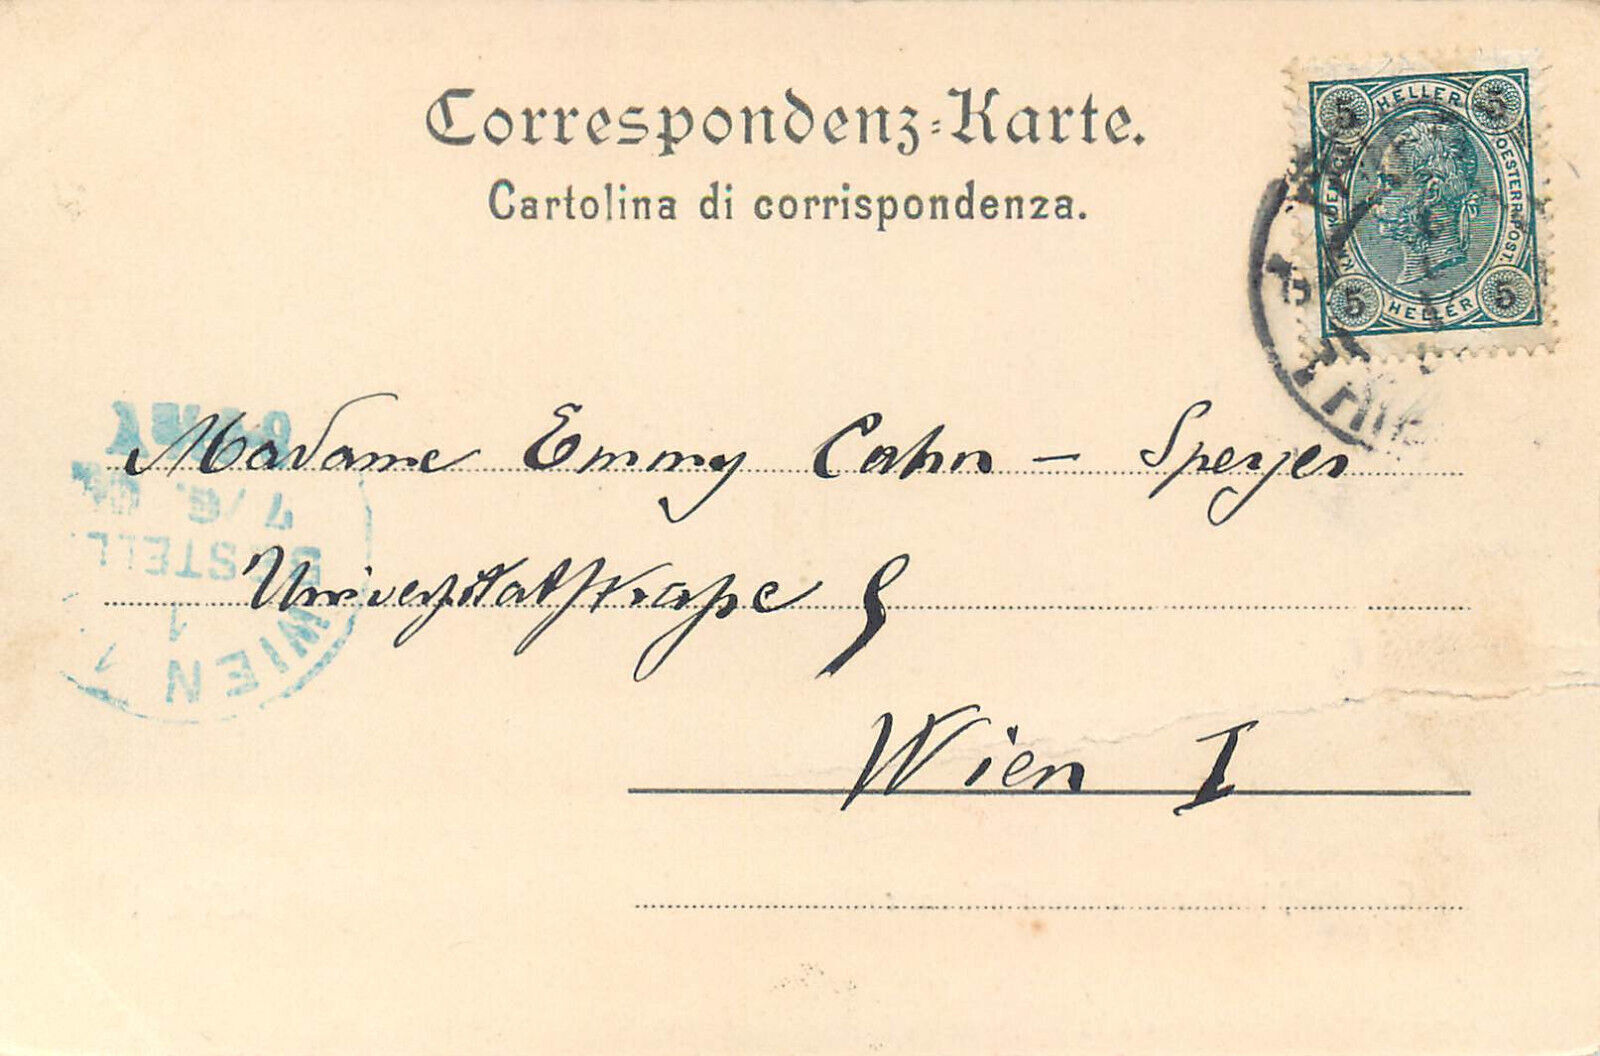 Correspondenz-Karte.
Cartolina di corrispondenza.
5 HELLER 5
OESTERR. POST.
5 HELLER 5
Madame Emmy Cahn - Speyer
Universitatstraße 9
Wien I
WIEN 1
1
BESTELL
7/6.